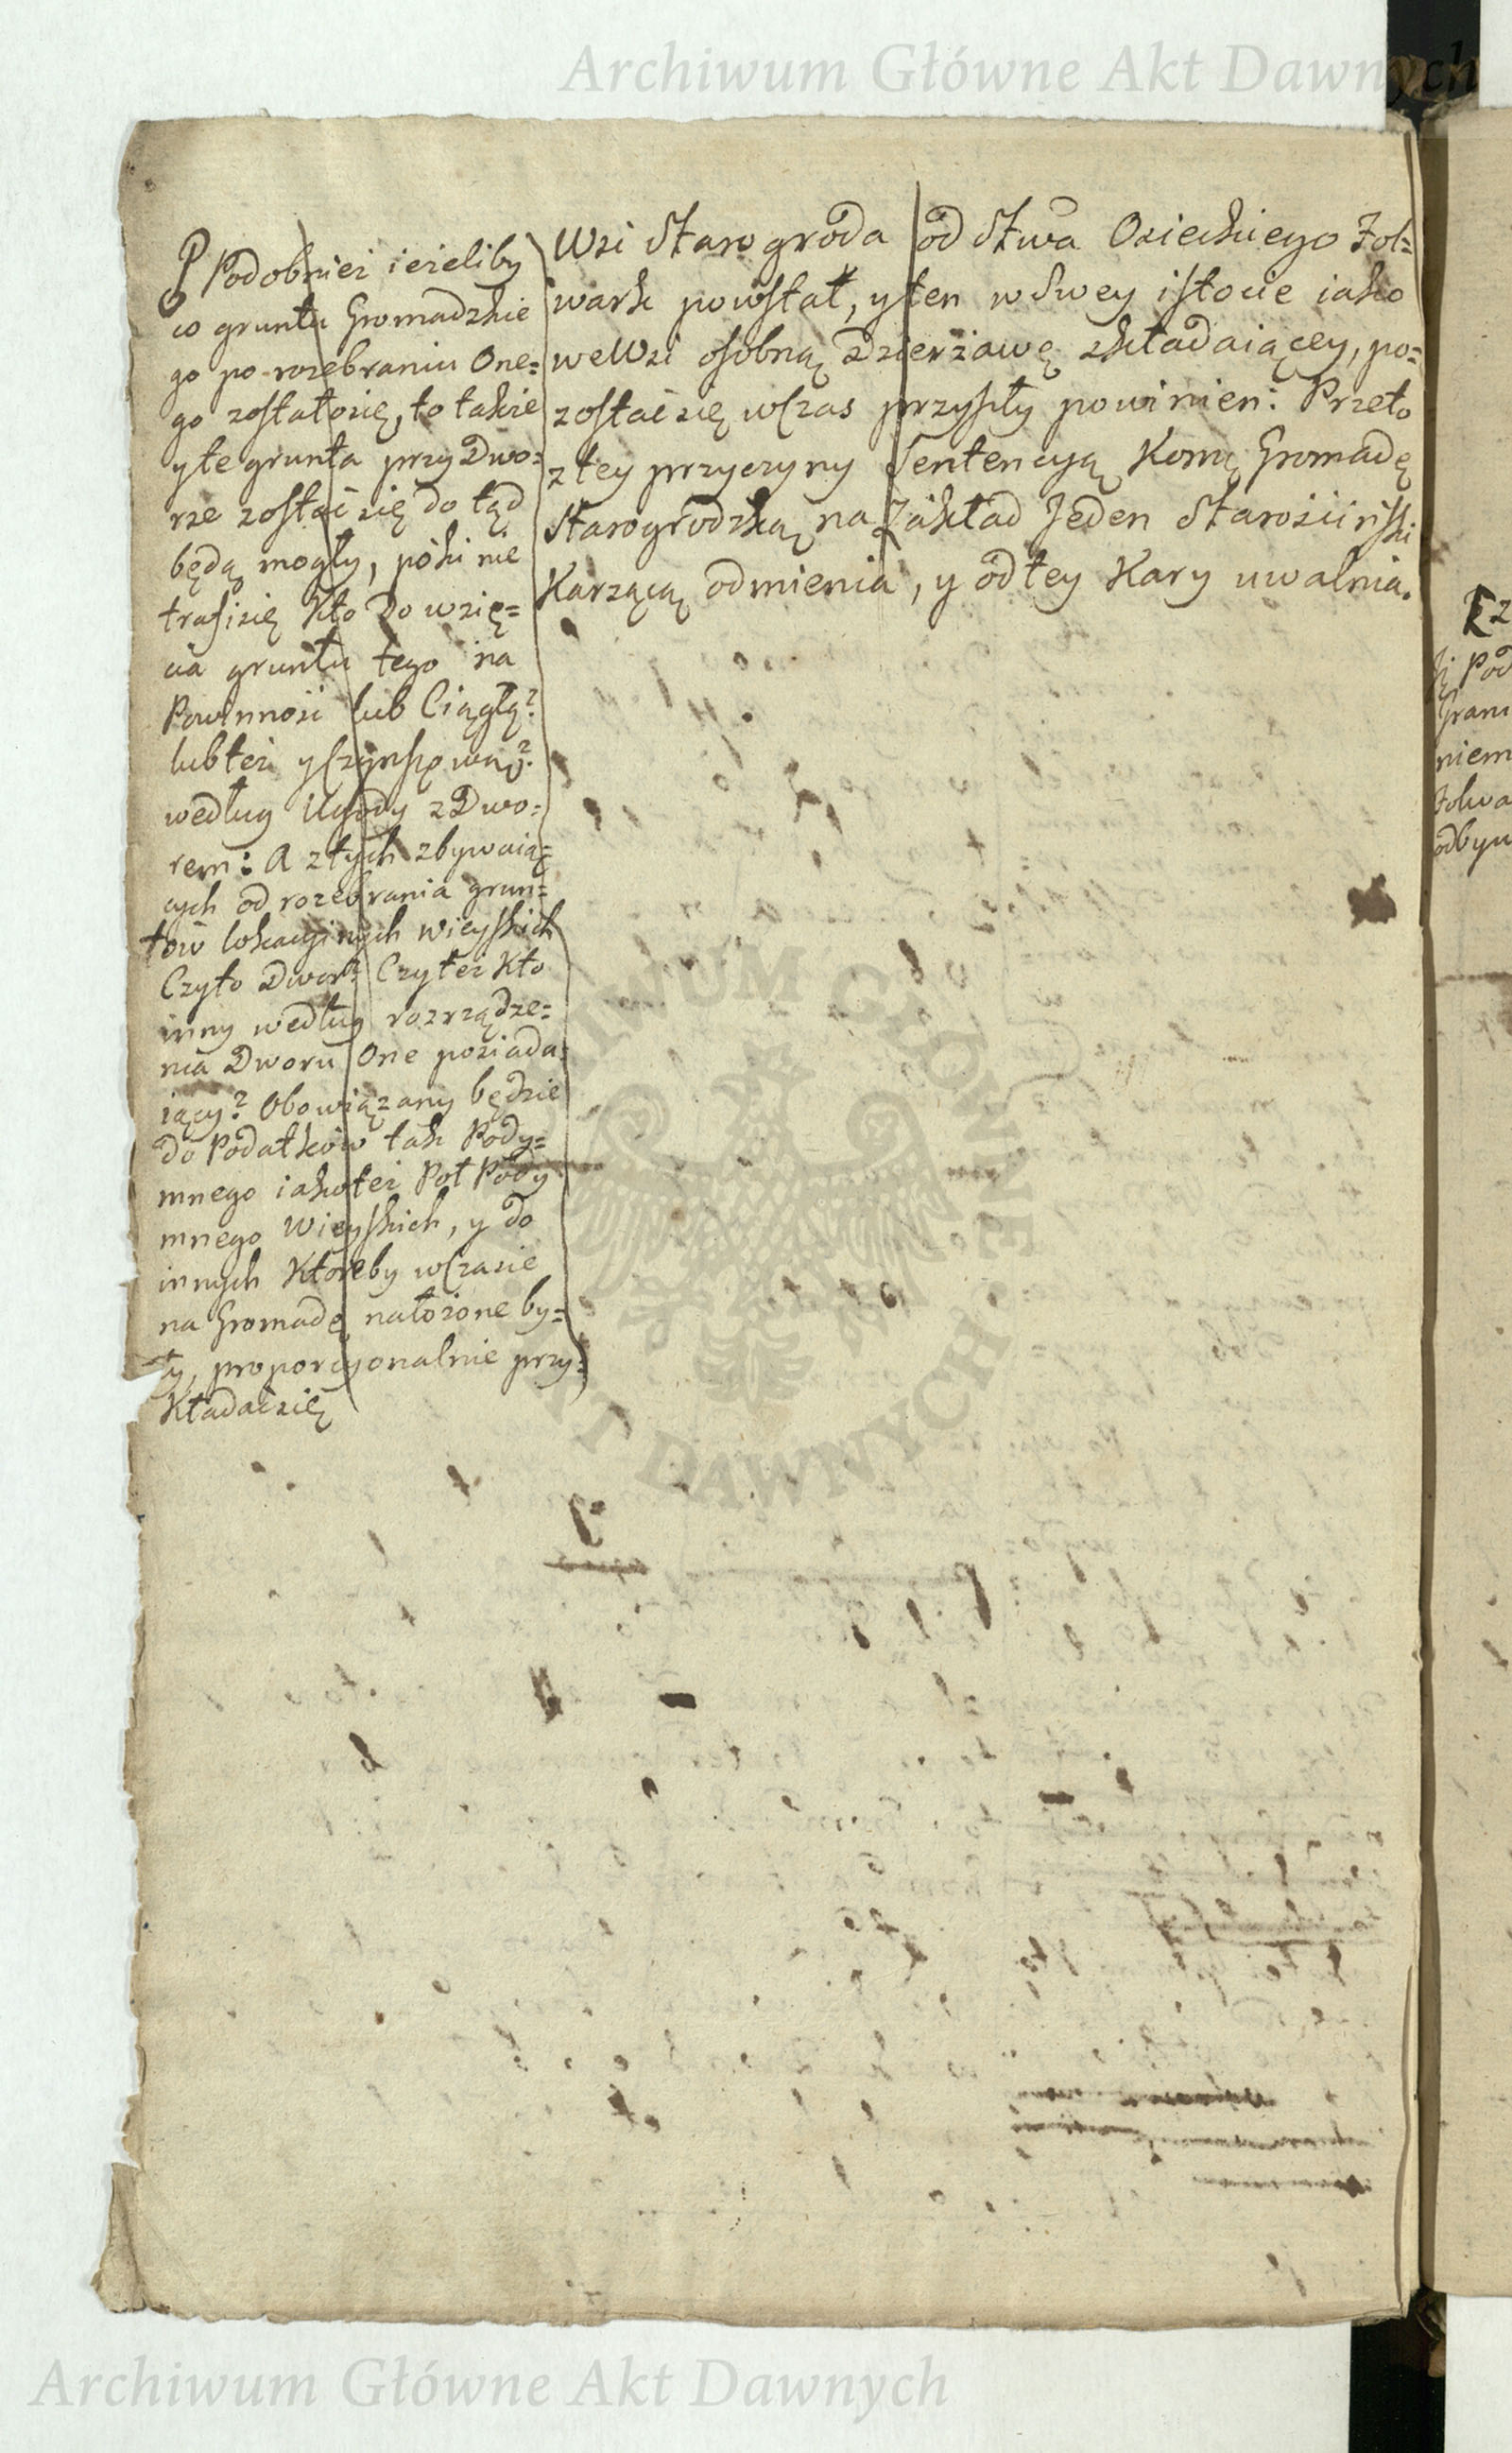 Archiwum Główne Akt Dawnych
Podobnież ieżeliby
co gruntu Gromadzkie
go po rozebraniu One=
go zostało się, to takie
y te grunta przy Dwo=
rze zostać się do tąd
będą mogły, póki nie
trafi się Kto Do wzię=
cia gruntu tego na
Powinność lub Ciągłą?
lub też y Czynszową?
według Ugody z Dwo=
rem: A z tych zbywaią=
cych od rozebrania grun=
tów lokacyinych wieyskich
Czyto Dwor? Czyteż Kto
inny według rozrządze=
nia Dworu One posiada=
iący? Obowiązany będzie
do Podatków tak Pody=
mnego iakoteż Poł Pody
mnego Wieyskich, y do
innych Któreby w Czasie
na Gromadę nałożone by=
ły, proporcyonalnie przy=
Kładać się
Wsi Starogroda od Stwa Osieckiego Fol=
wark powstał, y ten w Swey istocie iako
we Wsi osobną Dzierżawę składaiącey, po=
zostać się w Czas przyszły powinien: Przeto
z tey przyczyny Sentencyą Kom: Gromadę
Starogrodzką na Zakład Jeden Starościński
Karzącą odmienia, y od tey Kary uwalnia.
Pod
Grani
niem
Folwa
odbyw
ARCHIWUM GŁÓWNE
AKT DAWNYCH
Archiwum Główne Akt Dawnych